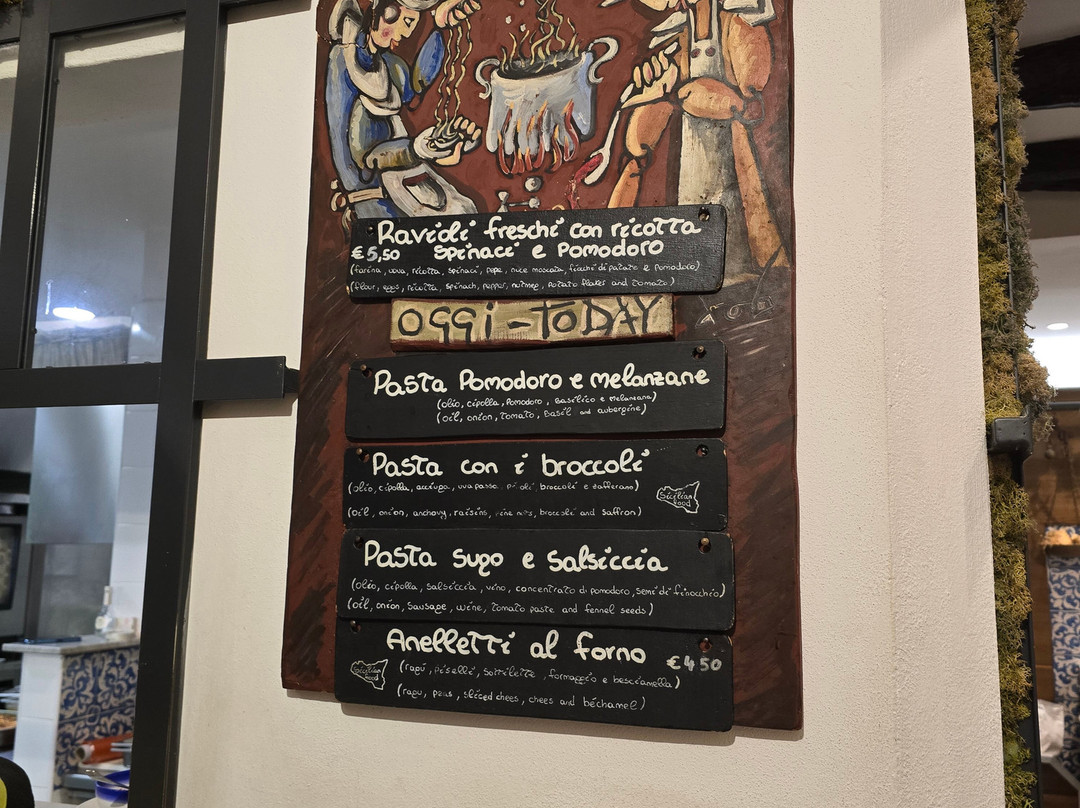 Ravioli freschi con ricotta
€5,50 Spinaci e Pomodoro
(farina, uova, ricotta, spinaci, pepe, noce moscata, fiocchi di patate e pomodoro)
(flour, eggs, ricotta, spinach, pepper, nutmeg, potato flakes and tomato)
OGGI-TODAY
Pasta Pomodoro e melanzane
(olio, cipolla, Pomodoro, Basilico e melanzana)
(oil, onion, tomato, Basil and aubergine)
Pasta con i broccoli
(olio, cipolla, acciuga, uva passa, broccoli e zafferano)
Sicilian
food
(oil, onion, anchovy, raisins, broccoli and saffron)
Pasta sugo e salsiccia
(olio, cipolla, salsiccia, vino, concentrato di pomodoro, semi di finocchio)
(oil, onion, sausage, wine, tomato paste and fennel seeds)
Anelletti al forno
€4.50
Sicilian
food
(ragù, piselli, sottilette, formaggio e besciamella)
(ragu, peas, sliced chees, chees and béchamel)